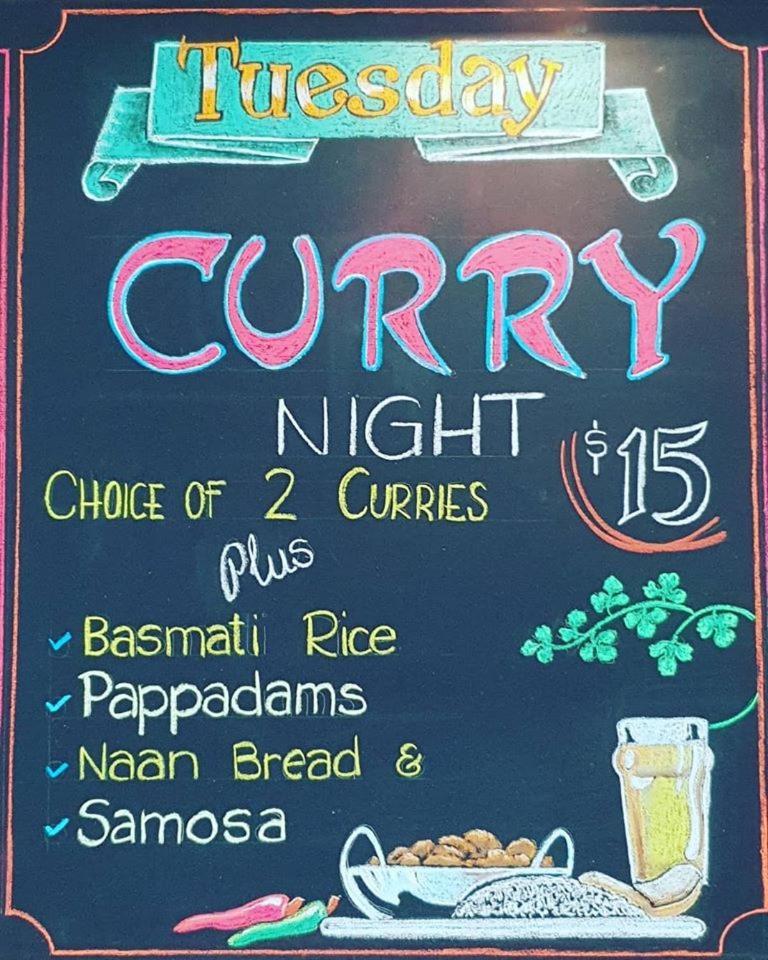 Tuesday
CURRY
NIGHT
$15
CHOICE OF 2 CURRIES
Plus
✓ Basmati Rice
✓ Pappadams
✓ Naan Bread &
✓ Samosa